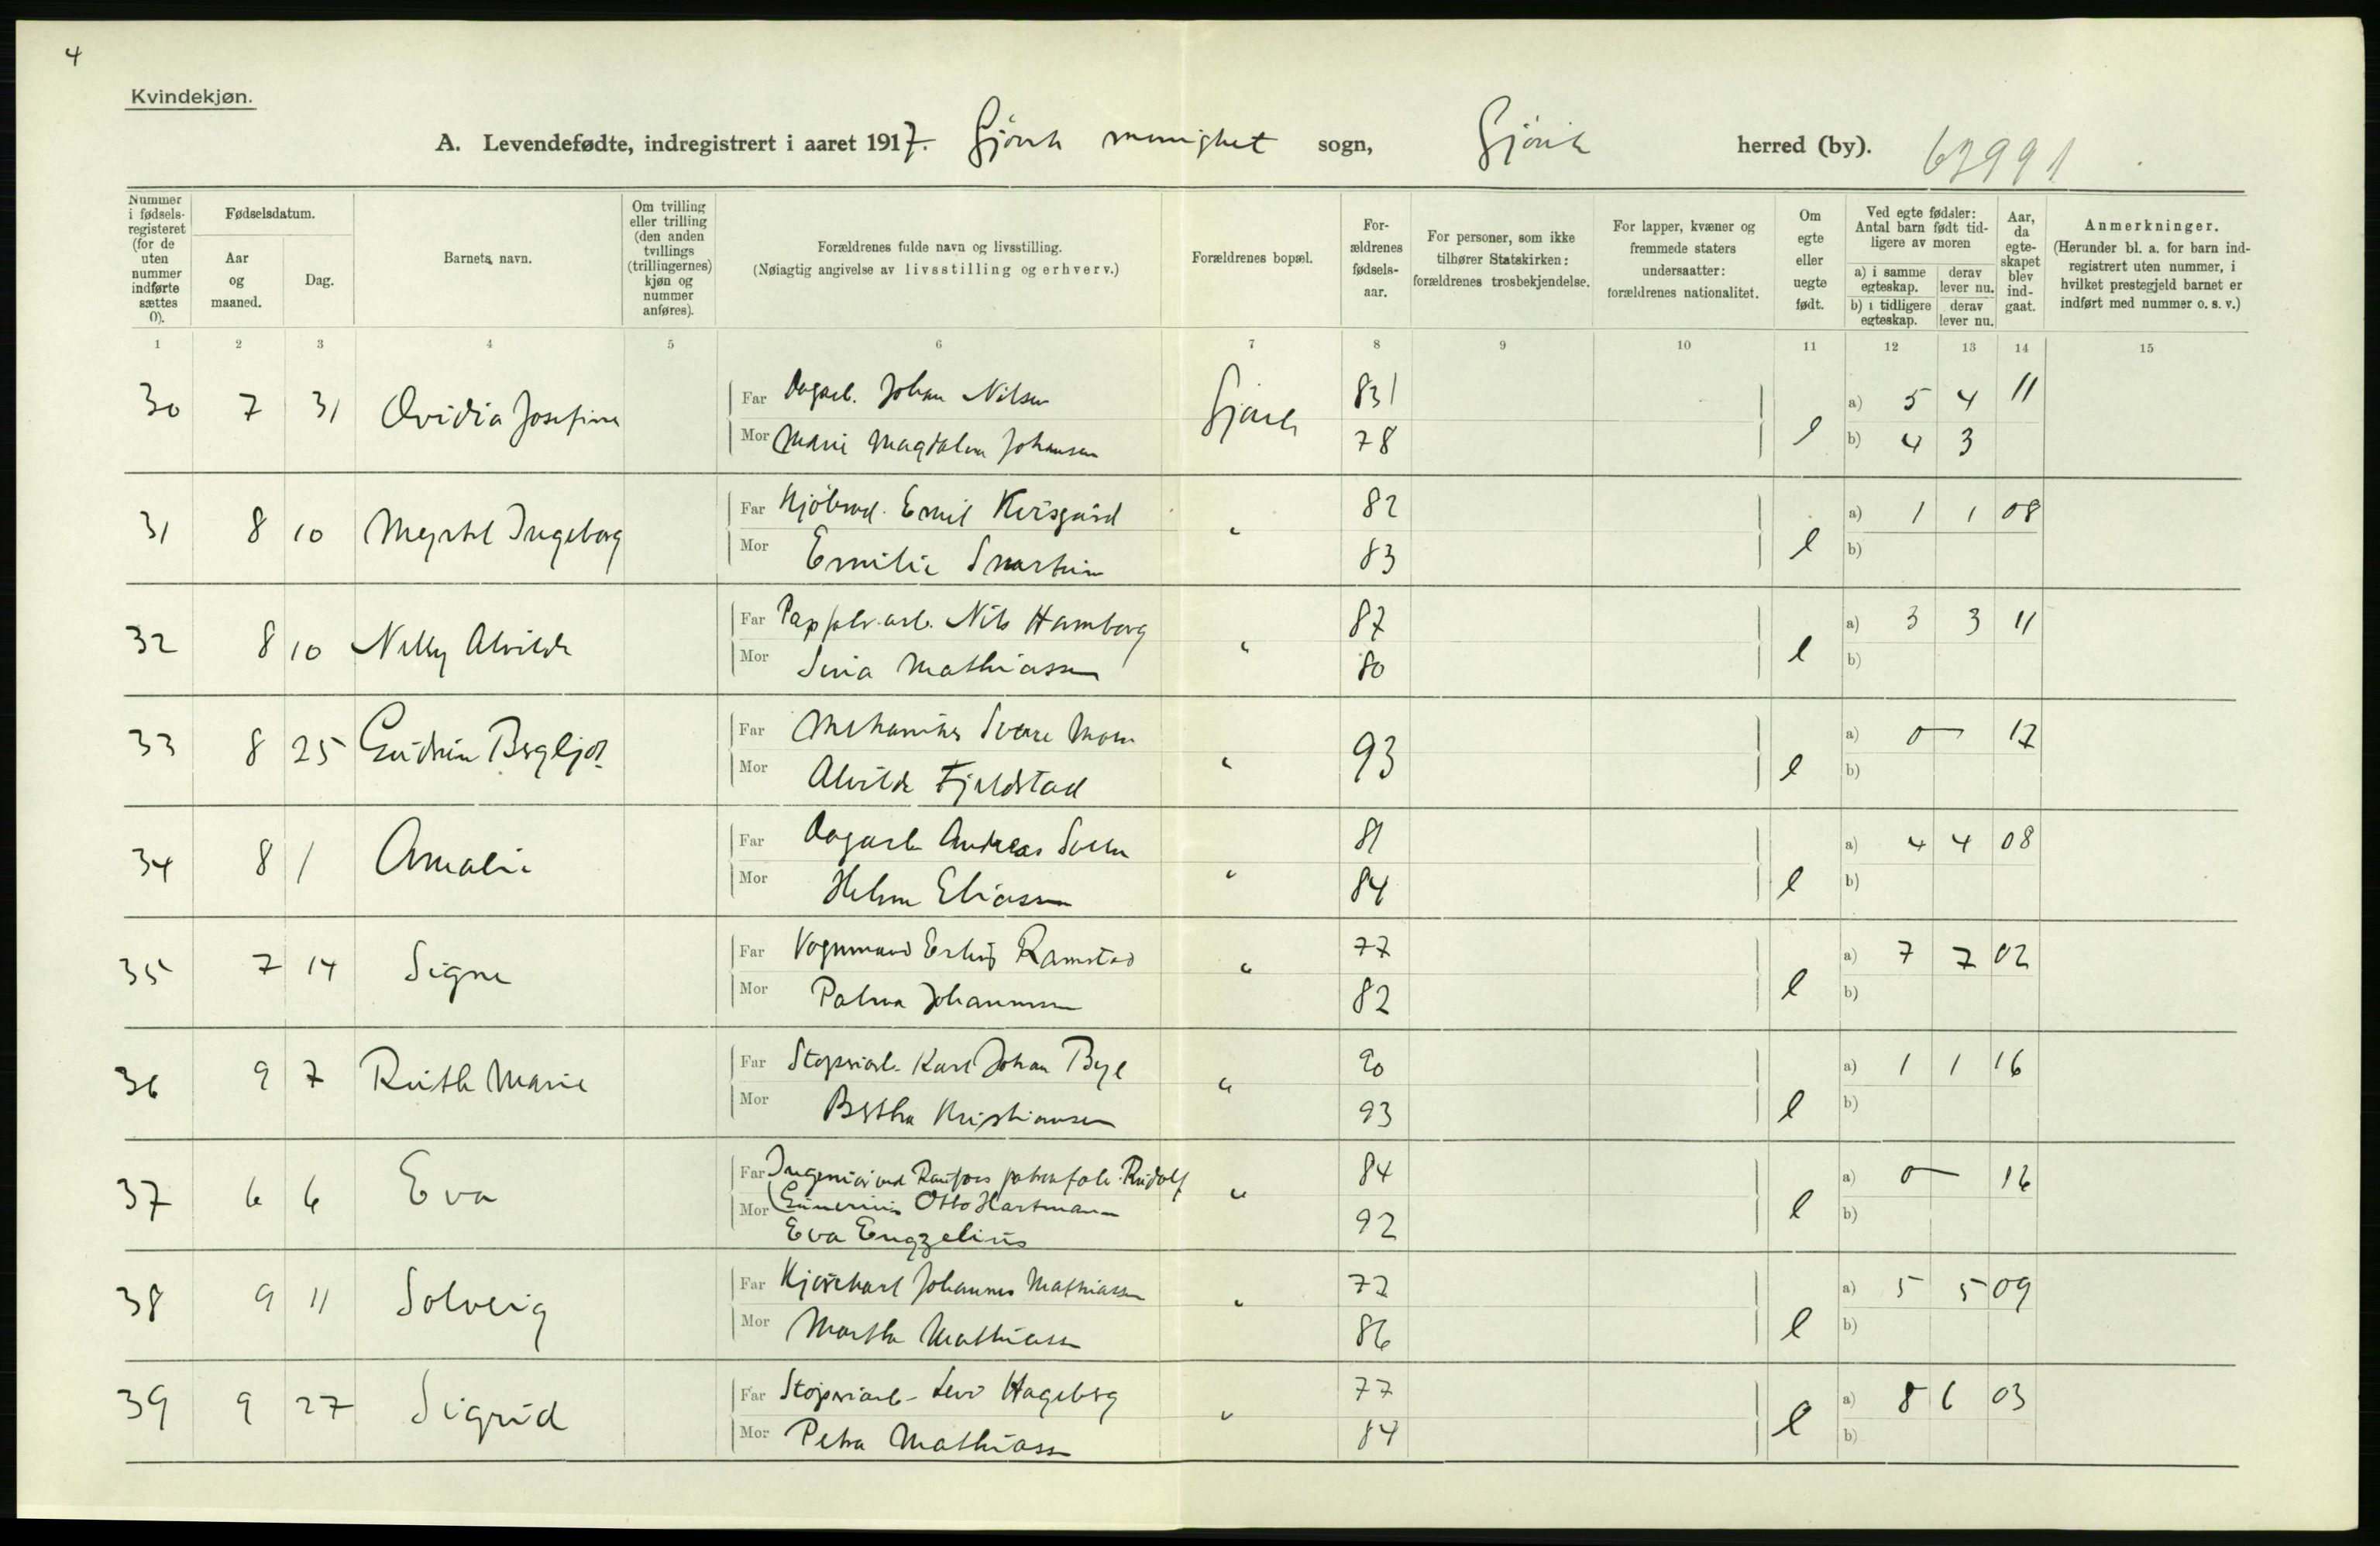 4
Kvindekjøn.
A. Levendefødte, indregistrert i aaret 1917. Gjövik menighet sogn, Gjövik herred (by). 63991
Nummer i fødselsregisteret (for de uten nummer indførte sættes 0).
Fødselsdatum.
Aar og maaned.
Dag.
Barnets navn.
Om tvilling eller trilling (den anden tvillings (trillingernes) kjøn og nummer anføres).
Forældrenes fulde navn og livsstilling.
(Nøiagtig angivelse av livsstilling og erhverv.)
Forældrenes bopæl.
Forældrenes fødselsaar.
For personer, som ikke tilhører Statskirken: forældrenes trosbekjendelse.
For lapper, kvæner og fremmede staters undersaatter: forældrenes nationalitet.
Om egte eller uegte født.
Ved egte fødsler: Antal barn født tidligere av moren
a) i samme egteskap. derav lever nu.
b) i tidligere egteskap. derav lever nu.
Aar, da egteskapet blev indgaat.
Anmerkninger.
(Herunder bl. a. for barn indregistrert uten nummer, i hvilket prestegjeld barnet er indført med nummer o. s. v.)
1 2 3 4 5 6 7 8 9 10 11 12 13 14 15
30 7 31 Ovidia Josefine Far Dagarb. Johan Nilsen Gjövik 81 a) 5 4 11
Mor Marie Magdalena Johansen 78 e b) 4 3
31 8 10 Myrtel Ingeborg Far Kjöbmd. Emil 82 a) 1 1 08
Mor Emilie 83 e b)
32 8 10 Nelly Alvilde Far Nils Hamborg " 87 a) 3 3 11
Mor Mathiassen 80 e b)
33 8 25 Gudrun Bergljot Far Mekaniker Sverre Moen " 93 a) 0 — 17
Mor Alvilde Fjeldstad e b)
34 8 1 Amalie Far Dagarb Andreas " 81 a) 4 4 08
Mor Helene Eliassen 84 e b)
35 7 14 Signe Far Vognmand Ramstad " 77 a) 7 7 02
Mor Palma Johannessen 82 e b)
36 9 7 Ruth Marie Far Karl Johan Bye " 90 a) 1 1 16
Mor Bertha Kristiansen 93 e b)
37 6 6 Eva Far Ingeniör ved Raufoss patronfabr. Rudolf " 84 a) 0 — 16
Mor Otto Hartmann
Eva Engzelius 92 e b)
38 9 11 Solveig Far Johannes Mathiassen " 72 a) 5 5 09
Mor Martha Mathiassen 86 e b)
39 9 27 Sigrid Far Hageberg " 77 a) 8 6 03
Mor Petra Mathiassen 84 e b)